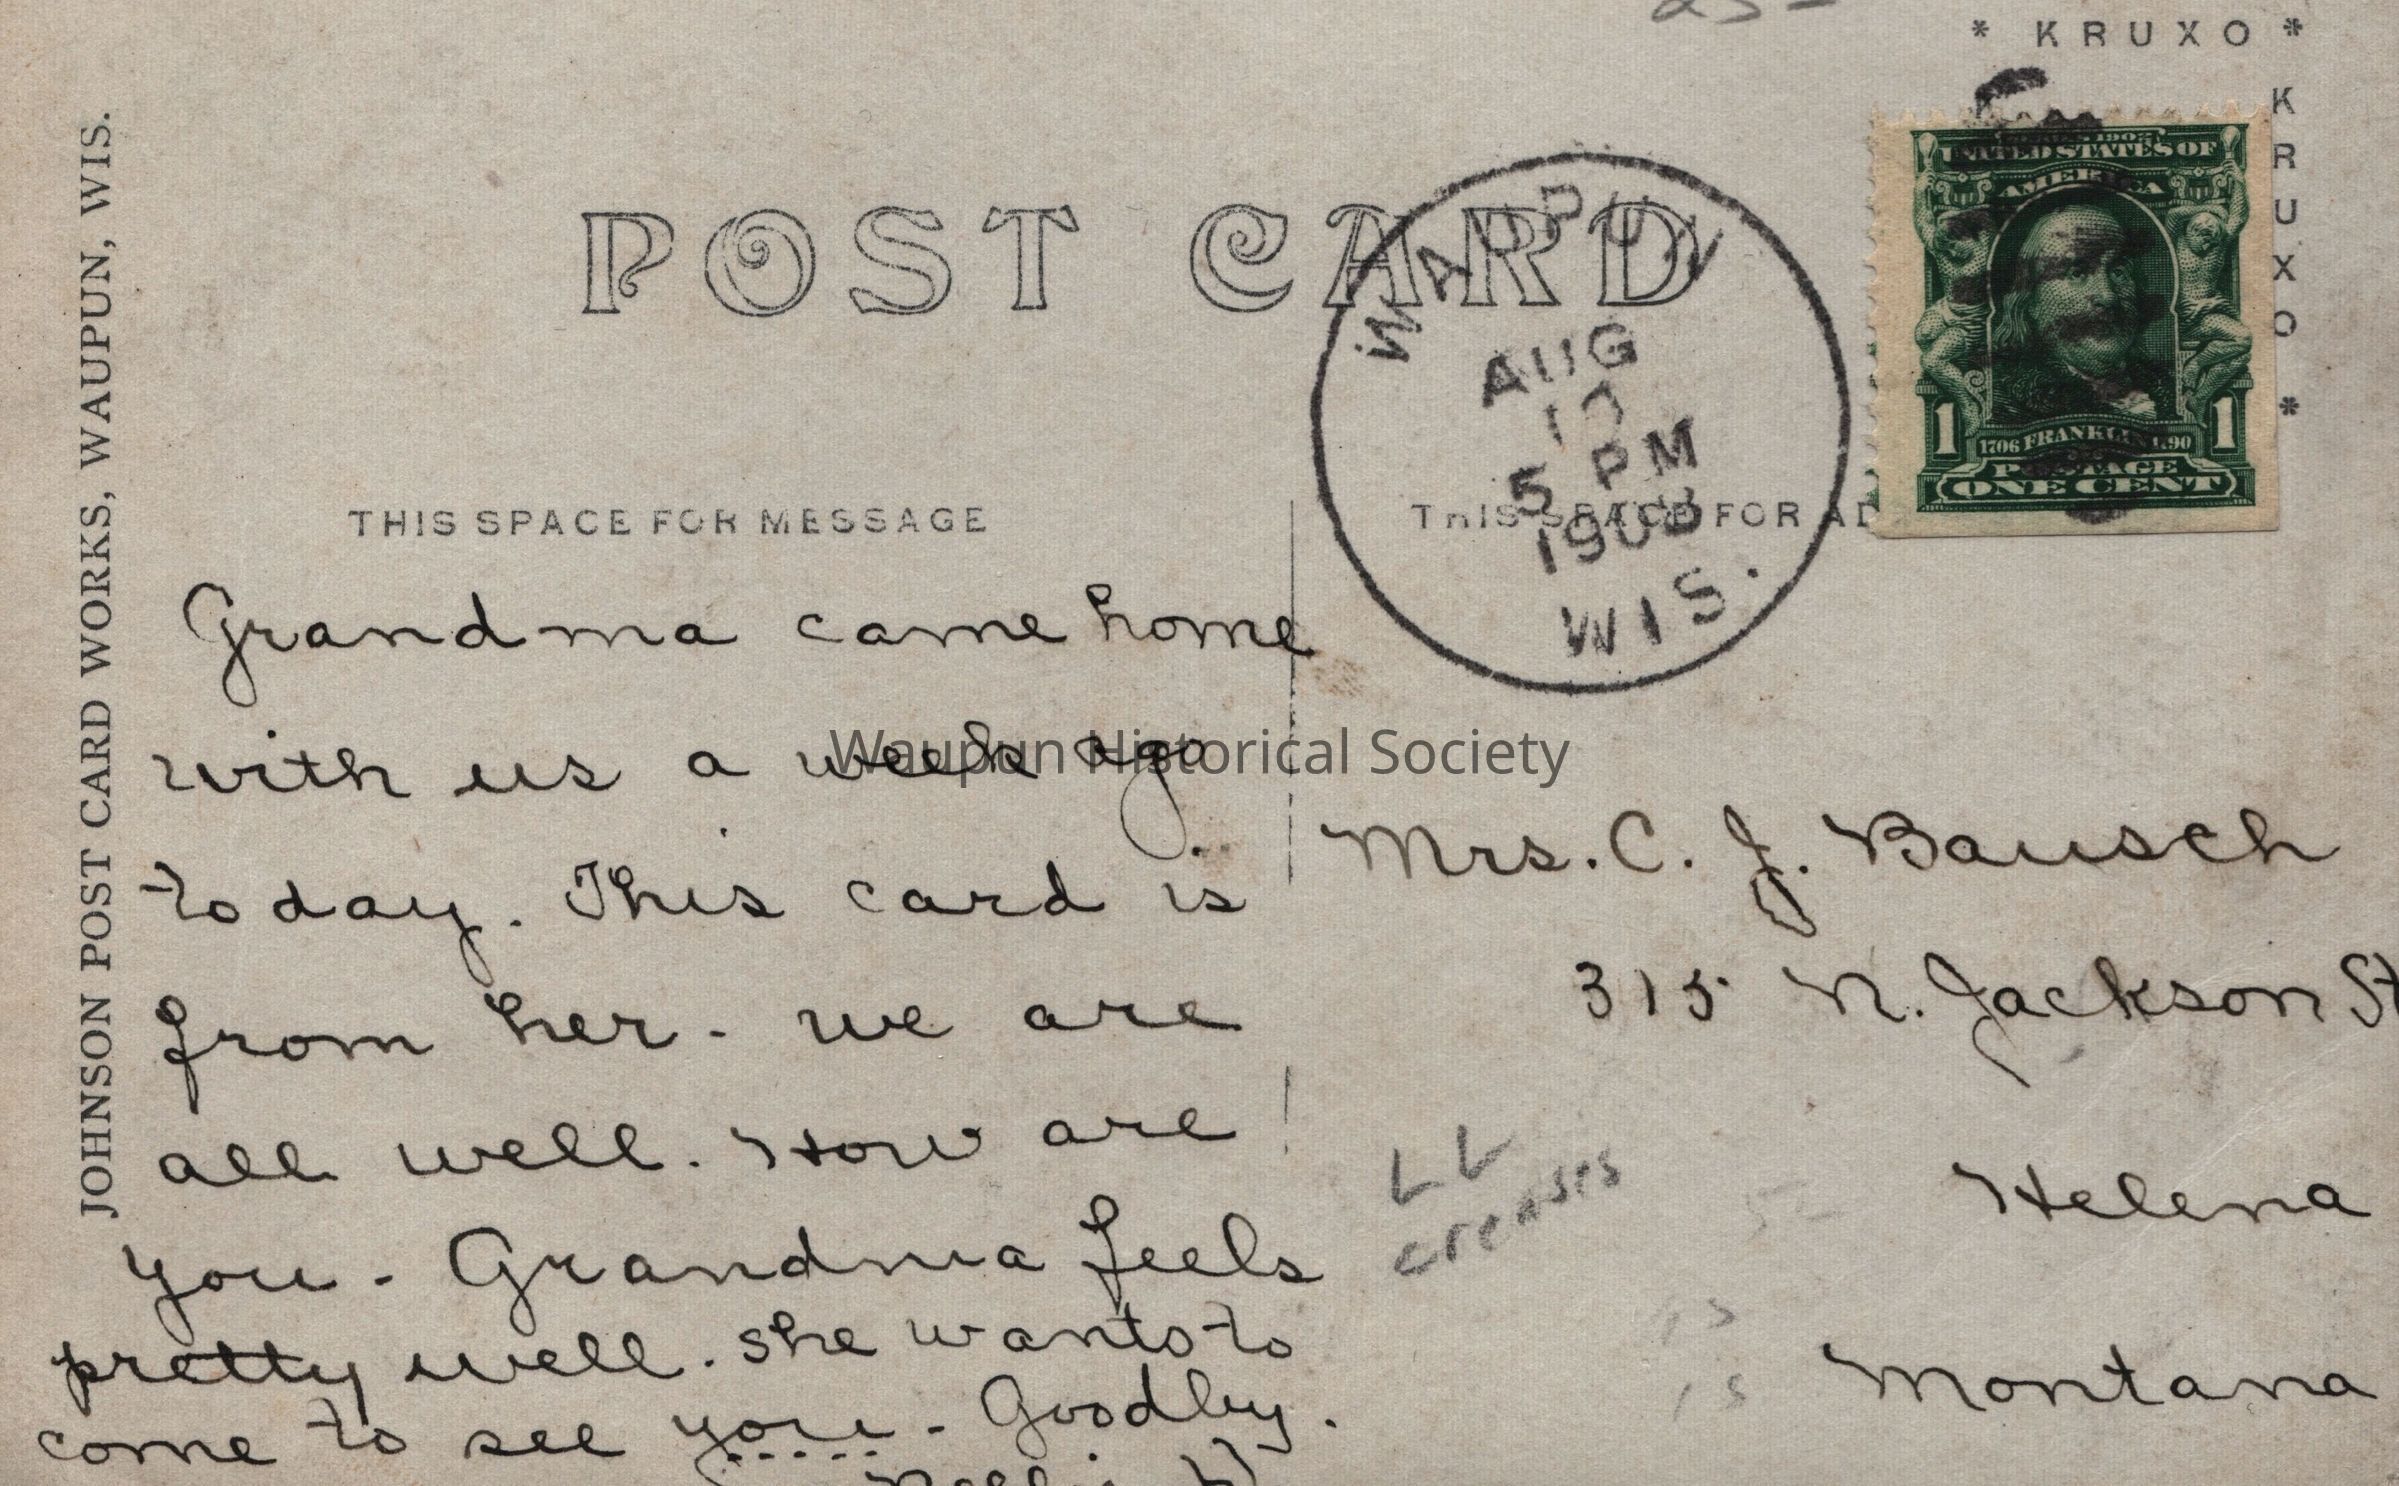 * KRUXO *
KRUXO *
JOHNSON POST CARD WORKS, WAUPUN, WIS.
POST CARD
WAUPUN
AUG
5 PM
1908
WIS.
UNITED STATES OF
AMERICA
1 1706 FRANKLIN 1790 1
POSTAGE
ONE CENT
THIS SPACE FOR MESSAGE
THIS SPACE FOR AD
Grandma came home
with us a week ago
today. This card is
from her - we are
all well. How are
you - Grandma feels
pretty well. she wants to
come to see you - Goodby.
Mrs. C. J. Bausch
315 N. Jackson St
Helena
Montana
LL
creases
Waupun Historical Society